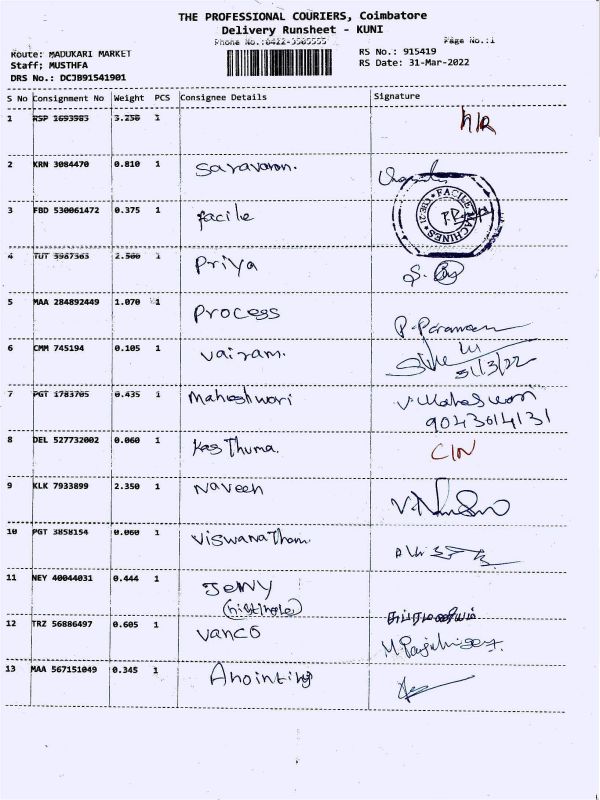 THE PROFESSIONAL COURIERS, Coimbatore
Delivery Runsheet - KUNI
Phone No.:0422-3505555 Page No.:1
Route: MADUKARI MARKET RS No.: 915419
Staff; MUSTHFA RS Date: 31-Mar-2022
DRS No.: DCJB91541901
S No Consignment No Weight PCS Consignee Details Signature
1 RSP 1693983 3.250 1 N/R
2 KRN 3084470 0.810 1 Saravanan.
3 FBD 530061472 0.375 1 facile FACILE MACHINES CBE-21
4 TUT 3987363 2.500 1 Priya
5 MAA 284892449 1.070 1 Process P. Parameen
6 CMM 745194 0.105 1 Vairam.
31/3/22
7 PGT 1783705 0.435 1 Maheshwari V. Maheswari
9043614131
8 DEL 527732002 0.060 1 Kas Thuma. C/N
9 KLK 7933899 2.350 1 Naveen
10 PGT 3858154 0.060 1 Viswanatham.
11 NEY 40044031 0.444 1 JENNY
சுப்ரமணியம்
12 TRZ 56886497 0.605 1 Vanco
13 MAA 567151049 0.345 1 Anointing